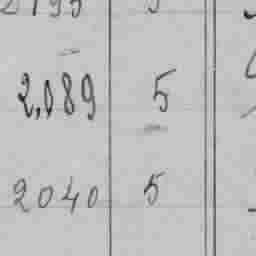 2,089 5
2040 5